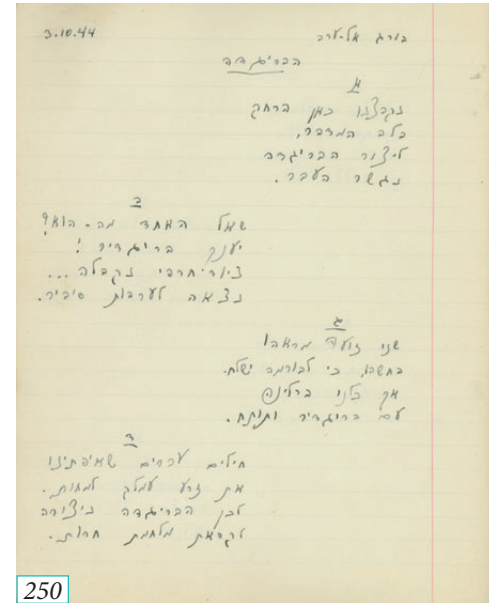 בורג אל-ערב 3.10.44
הבריגדה
א
נקבצנו כאן הרחק
בלב המדבר,
ליצור הבריגדה
נגשר העבר.
ב
שאל האחד מה-הוא?
בריגדיר !
ציוד-חרפי נקבלה...
נצאה לערבות סיביר.
ג
שני מראהו
כי לבורמה ישלח.
אך כלנו ברלינה
עם בריגדיר ותותח.
ד
חילים עברים שאיפתינו
את זרע עמלק למחות.
לכן הבריגדה ניצורה
לקראת מלחמת חרות.
250